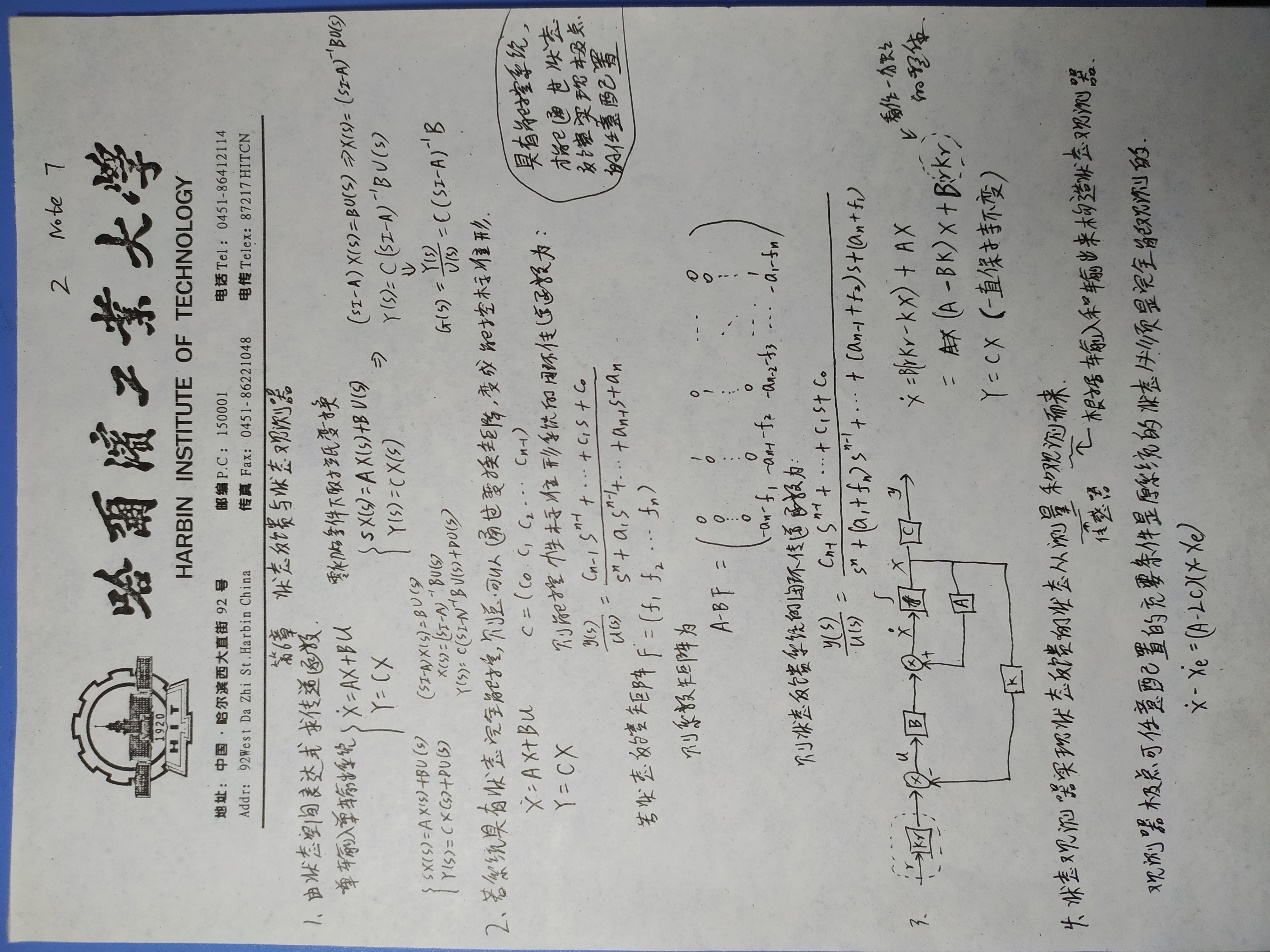 2 Note 7
哈爾濱工業大學
1920
HIT
HARBIN INSTITUTE OF TECHNOLOGY
地址：中国·哈尔滨西大直街 92 号 邮编 P.C：150001 电话 Tel：0451-86412114
Addr：92West Da Zhi St.Harbin China 传真 Fax：0451-86221048 电传 Telex：87217 HITCN
第6章 状态反馈与状态观测器
1、由状态空间表达式求传递函数.
单输入单输出系统 { Ẋ=AX+BU
Y=CX
零初始条件下取拉氏变换
{ SX(s)=AX(s)+BU(s)
Y(s)=CX(s)
⇒
(SI-A)X(s)=BU(s) ⇒ X(s)=(SI-A)⁻¹BU(s)
Y(s)=C(SI-A)⁻¹BU(s)
⇓
G(s)=Y(s)/U(s)=C(SI-A)⁻¹B
{ SX(s)=AX(s)+BU(s)
Y(s)=CX(s)+DU(s)
(SI-A)X(s)=BU(s)
X(s)=(SI-A)⁻¹BU(s)
Y(s)=C(SI-A)⁻¹BU(s)+DU(s)
2、若系统具有状态完全能控,则总可以通过变换矩阵,变成能控标准形.
Ẋ=AX+BU C=(C₀ C₁ C₂ ⋯ Cn-1)
Y=CX 则能控性标准形系统的闭环传递函数为:
y(s)/u(s) = (Cn-1 Sⁿ⁻¹+⋯+C₁S+C₀)/(Sⁿ+a₁Sⁿ⁻¹+⋯+an-1S+an)
具有能控系统,
才能通过状态
反馈实现极点
的任意配置
若状态反馈矩阵 F=(f₁ f₂ ⋯ fn)
则系数矩阵为
A-BF =
0 1 0 ⋯ 0
0 0 1 0
⋮ ⋮ ⋮ ⋱ ⋮
0 0 0 ⋯ 1
-an-f₁ -an-1-f₂ -an-2-f₃ ⋯ -a₁-fn
则状态反馈系统的闭环传递函数为:
y(s)/u(s) = (Cn-1 Sⁿ⁻¹+⋯+C₁S+C₀)/(Sⁿ+(a₁+fn)Sⁿ⁻¹+⋯+(an-1+f₂)S+(an+f₁))
3、
r Kr × - u B × + ẋ ∫ x C y
A
K
ẋ=B(rKr-kX)+AX
=(A-BK)X+BrKr
Y=CX (一直保持不变)
看作一个独立
的整体
4、状态观测器实现状态反馈的状态从测量和观测而来.
传感器
根据输入和输出来构造状态观测器.
观测器极点可任意配置的充要条件是原系统的状态必须是完全能观测的.
ẋ-ẋe=(A-LC)(X-Xe)